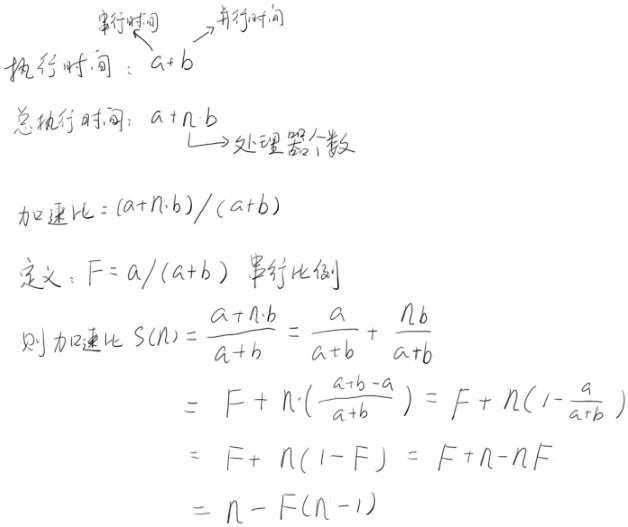 串行时间 并行时间
执行时间：a+b
总执行时间：a+n·b
处理器个数
加速比=(a+n·b)/(a+b)
定义：F=a/(a+b) 串行比例
则加速比 S(n)=\frac{a+n·b}{a+b}=\frac{a}{a+b}+\frac{nb}{a+b}
= F+n·(\frac{a+b-a}{a+b})=F+n(1-\frac{a}{a+b})
= F+n(1-F)=F+n-nF
= n-F(n-1)